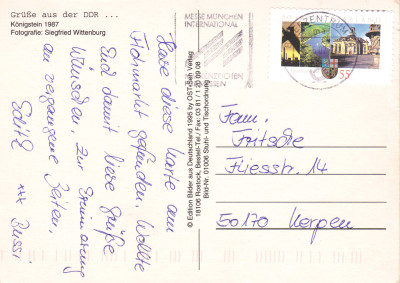 Grüße aus der DDR ...
Königstein 1987
Fotografie: Siegfried Wittenburg
Habe diese Karte am
Flohmarkt gefunden. Wollte
Euch damit liebe Grüße
wünschen, zur Erinnerung
an vergangene Zeiten,
Edith
xxx Bussi
© Edition Bilder aus Deutschland 1995 by OSTkreuz Verlag
18106 Rostock, Bestell-Tel./Fax: 03 81 / 1 20 09 08
Bild-Nr. 01006 Stuhl- und Tischordnung
MESSE MÜNCHEN
INTERNATIONAL
55
Fam.
Fritsche
Fliesstr. 14
50170 Kerpen